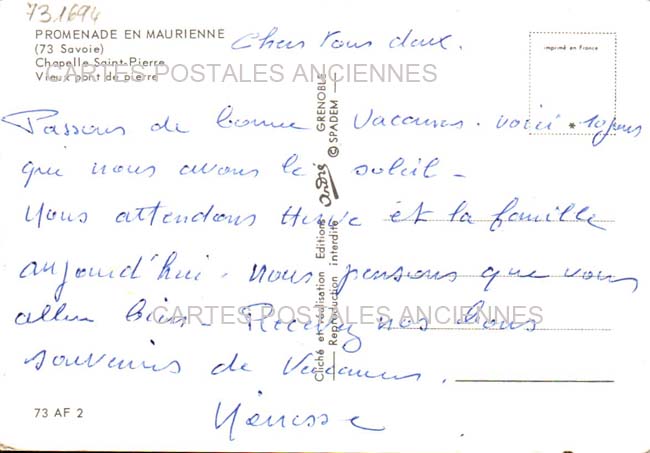 73.1694
PROMENADE EN MAURIENNE
(73 Savoie)
Chapelle Saint-Pierre
Vieux pont de pierre
imprimé en France
Chers Vous deux.
CARTES POSTALES ANCIENNES
Passons de bonne vacances. voici 10 jours
que nous avons le soleil -
Nous attendons Herve et la famille
aujourd'hui. Nous pensons que vous
allez bien - Recevez nos bons
CARTES POSTALES ANCIENNES
souvenirs de Vacances.
Cliché et réalisation Editions André GRENOBLE
Reproduction interdite © SPADEM
73 AF 2